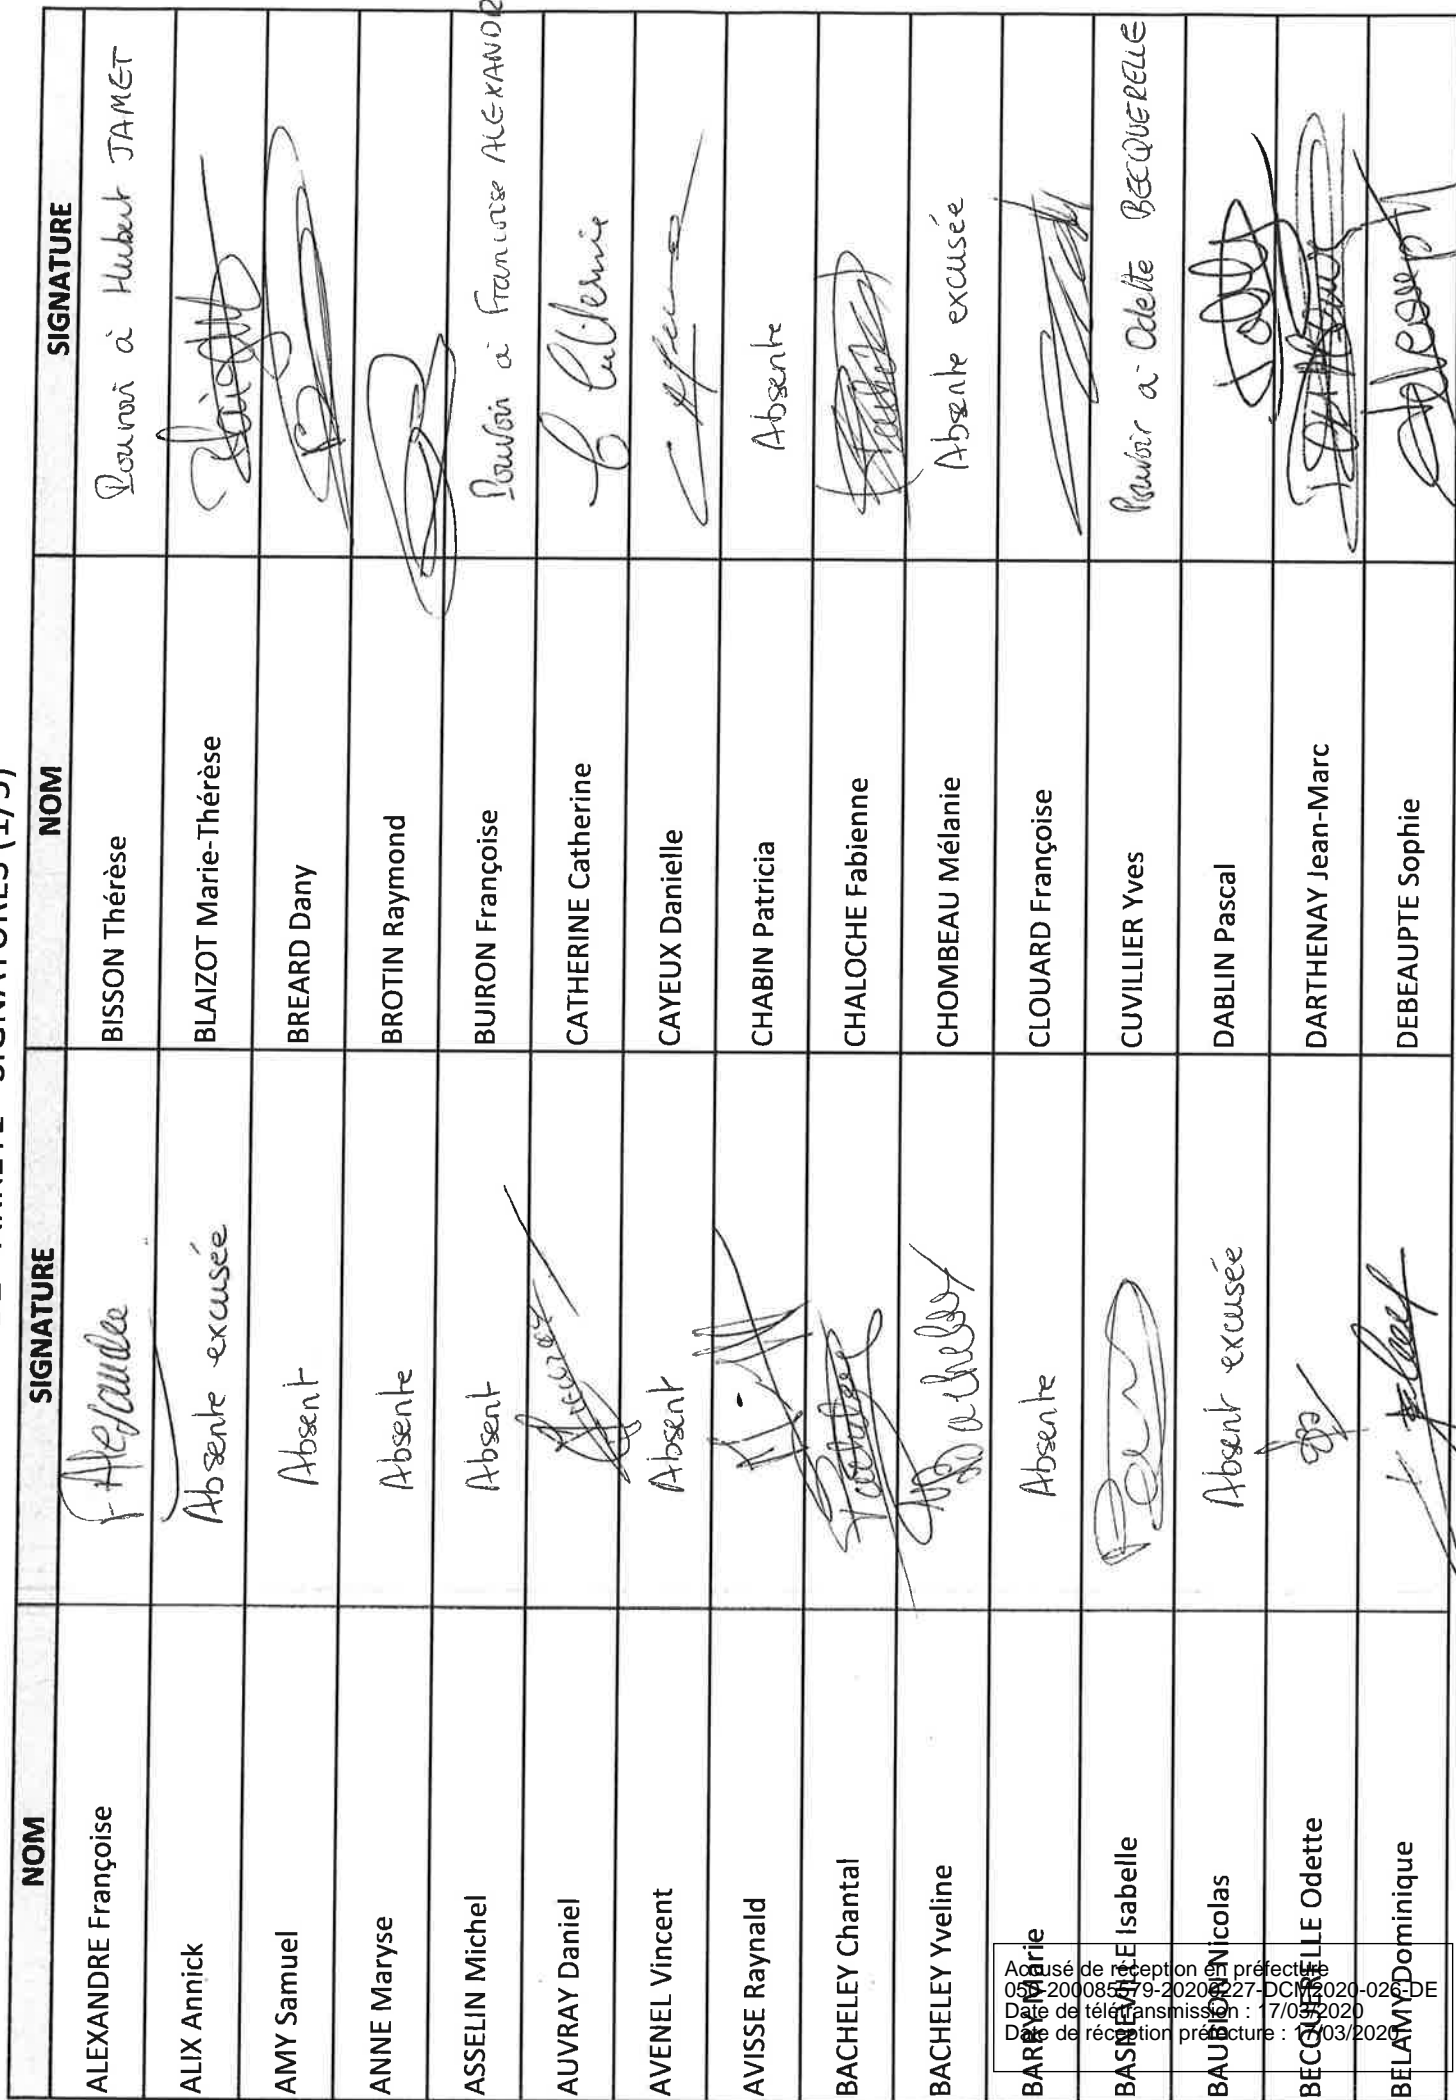 SIGNATURES (1/5)
NOM SIGNATURE NOM SIGNATURE
ALEXANDRE Françoise BISSON Thérèse Pouvoir à Hubert JAMET
ALIX Annick Absente excusée BLAIZOT Marie-Thérèse
AMY Samuel Absent BREARD Dany
ANNE Maryse Absente BROTIN Raymond
ASSELIN Michel Absent BUIRON Françoise Pouvoir à Francoise ALEXANDR
AUVRAY Daniel CATHERINE Catherine
AVENEL Vincent Absent CAYEUX Danielle
AVISSE Raynald CHABIN Patricia Absente
BACHELEY Chantal CHALOCHE Fabienne
BACHELEY Yveline CHOMBEAU Mélanie Absente excusée
BARRY Marie Absente CLOUARD Françoise
BASNEVILLE Isabelle CUVILLIER Yves Pouvoir à Odette BECQUERELLE
BAUBION Nicolas Absent excusée DABLIN Pascal
BECQUERELLE Odette DARTHENAY Jean-Marc
BELAMY Dominique DEBEAUPTE Sophie
Accusé de réception en préfecture
050-200085579-20200227-DCM2020-026-DE
Date de télétransmission : 17/03/2020
Date de réception préfecture : 17/03/2020